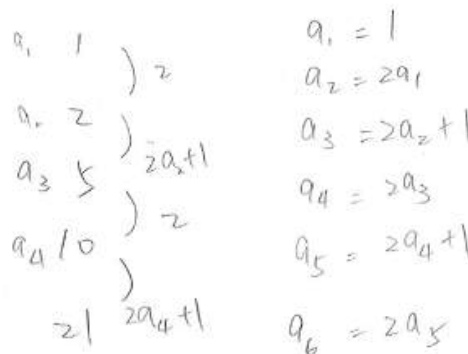 a₁ 1
) 2
a. 2
) 2a₂+1
a₃ 5
) 2
a₄ 10
)
21 2a₄+1
a₁ = 1
a₂ = 2a₁
a₃ = 2a₂+1
a₄ = 2a₃
a₅ = 2a₄+1
a₆ = 2a₅